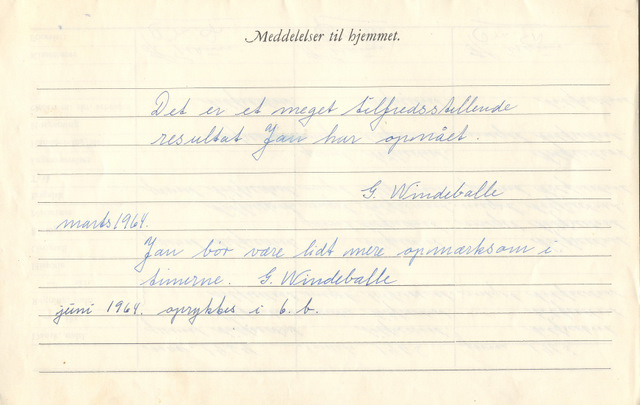 Meddelelser til hjemmet.
Det er et meget tilfredsstillende
resultat Jan har opnået.
G. Windeballe
marts 1964.
Jan bør være lidt mere opmærksom i
timerne. G. Windeballe
juni 1964. oprykkes i 6. b.